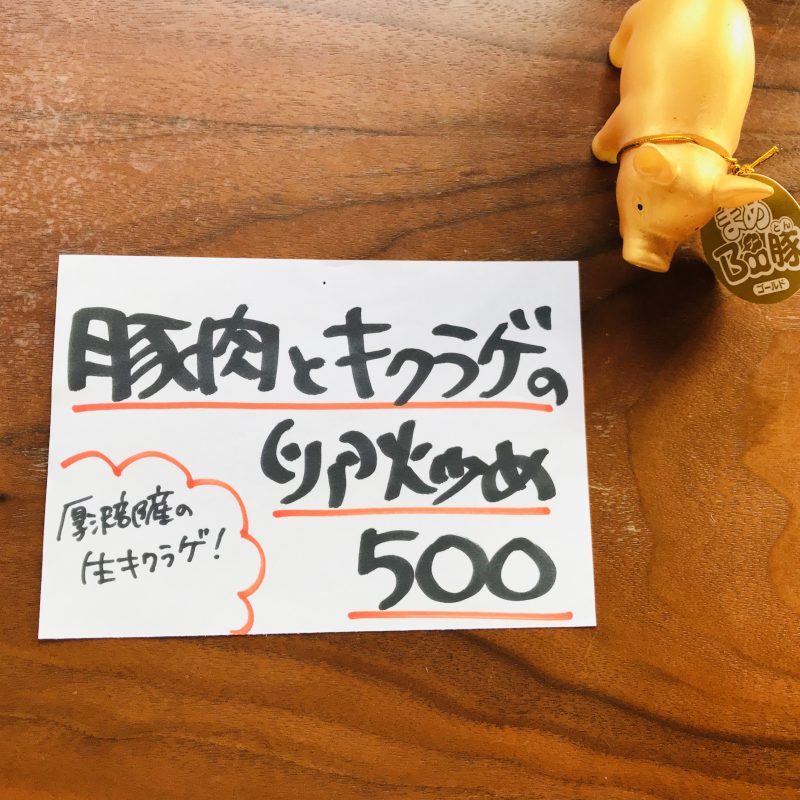 豚肉とキクラゲの
卵炒め
500
厚沢部産の
生キクラゲ!
まめ
BooBoo豚
とん
ゴールド